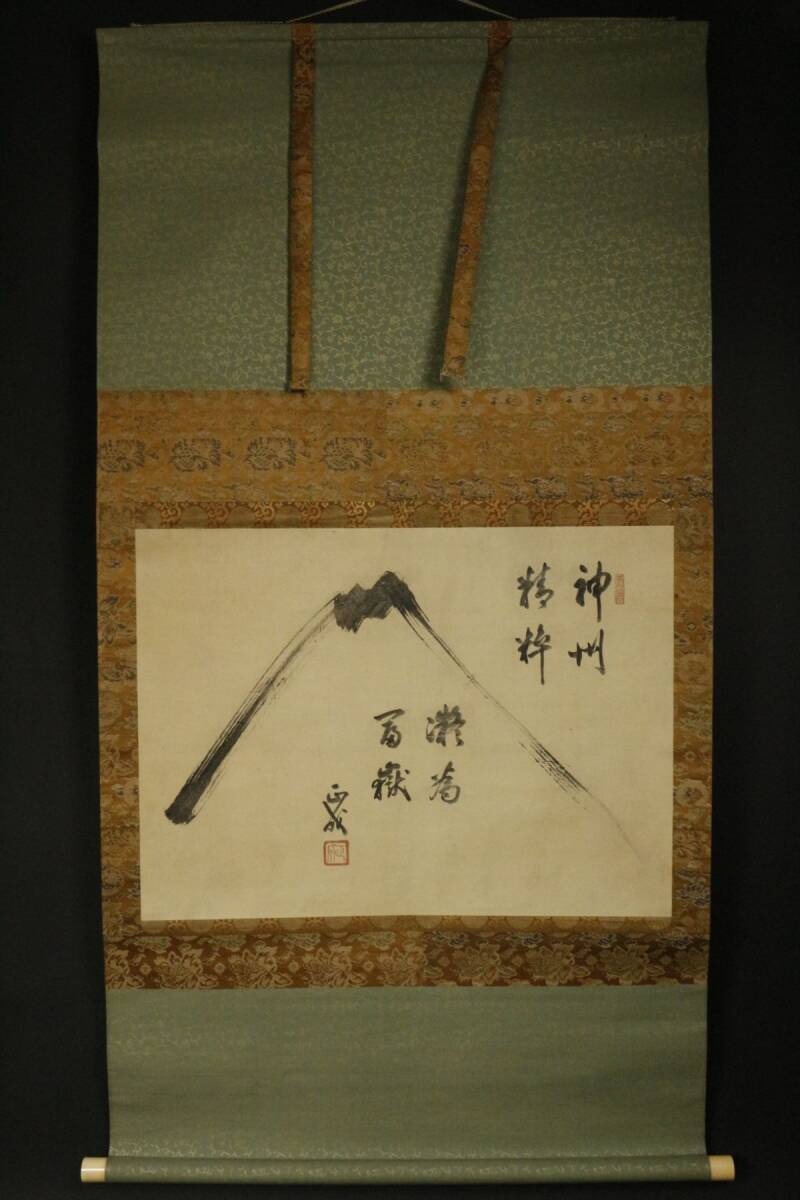 神州
精粋
凝為
富嶽